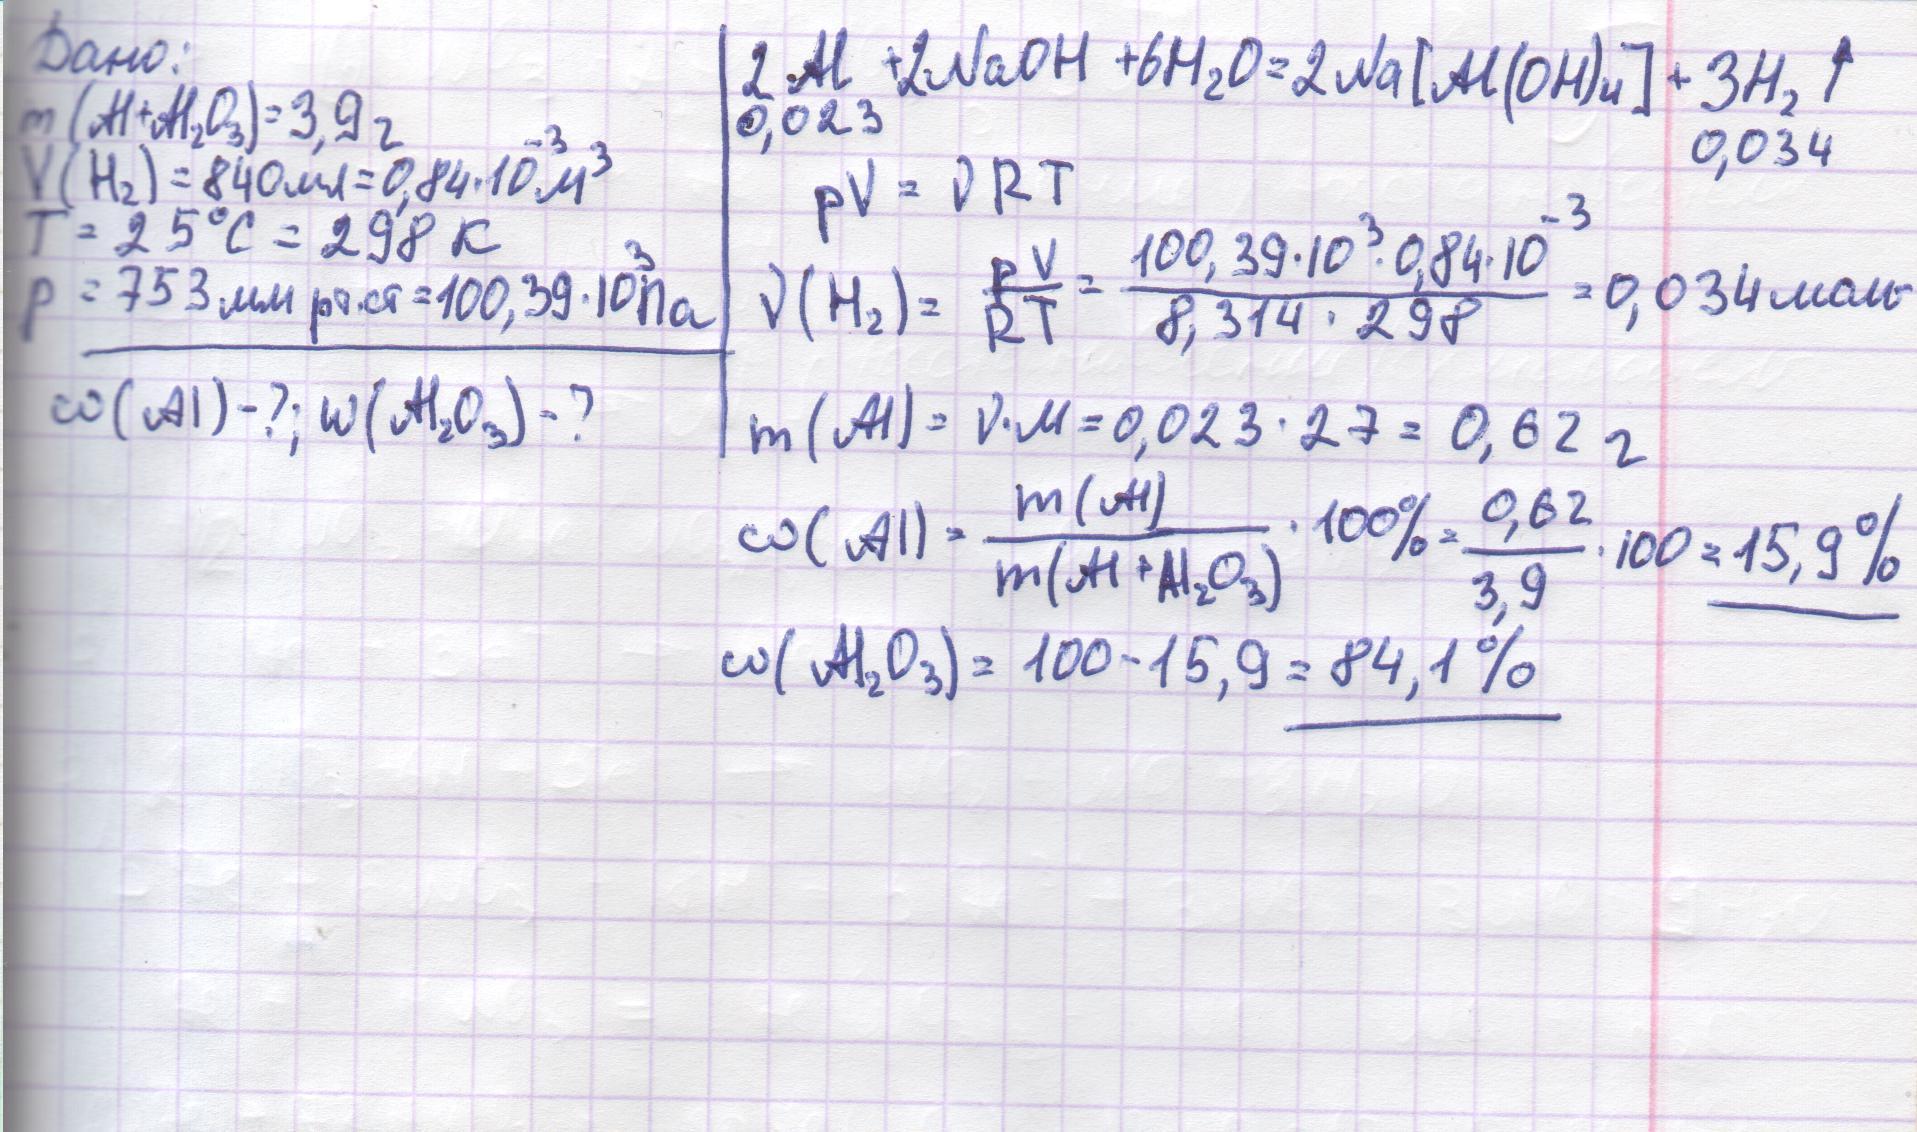 Дано:
m(Al+Al₂O₃)=3,9г
V(H₂)=840мл=0,84·10⁻³м³
T=25°C=298К
p=753мм рт.ст=100,39·10³Па
ω(Al)-?; ω(Al₂O₃)-?
2Al+2NaOH+6H₂O=2Na[Al(OH)₄]+3H₂↑
0,023 0,034
pV=νRT
ν(H₂)=pV/RT=100,39·10³·0,84·10⁻³/8,314·298=0,034моль
m(Al)=ν·M=0,023·27=0,62г
ω(Al)=m(Al)/m(Al+Al₂O₃)·100%=0,62/3,9·100=15,9%
ω(Al₂O₃)=100-15,9=84,1%